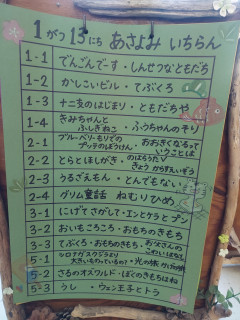 1がつ13にち あさよみ いちらん
1-1 でんごんでーす・しんせつなともだち
1-2 かしこいビル・てぶくろ
1-3 十二支のはじまり・ともだちや
1-4 きみちゃんとふしぎねこ・ふうちゃんのそり
2-1 ブルーベリーもりでのプッテのぼうけん・おおきくなるっていうことは
2-2 とらとほしがき・のはらうたⅤ きょうかぞえうた
2-3 うるさえもん・とんでもない
2-4 グリム童話 ねむりひめ
3-1 にげてさがして・エンとケラとプン
3-2 おいもころころ・おもちのきもち
3-3 てぶくろ・おもちのきもち・お父さんの
5-1 シロナガスクジラより大きいものっているの?・光の旅かげの旅
5-2 さるのオズワルド・ぼくのきもちはね
5-3 うし・ウェン王子とトラ